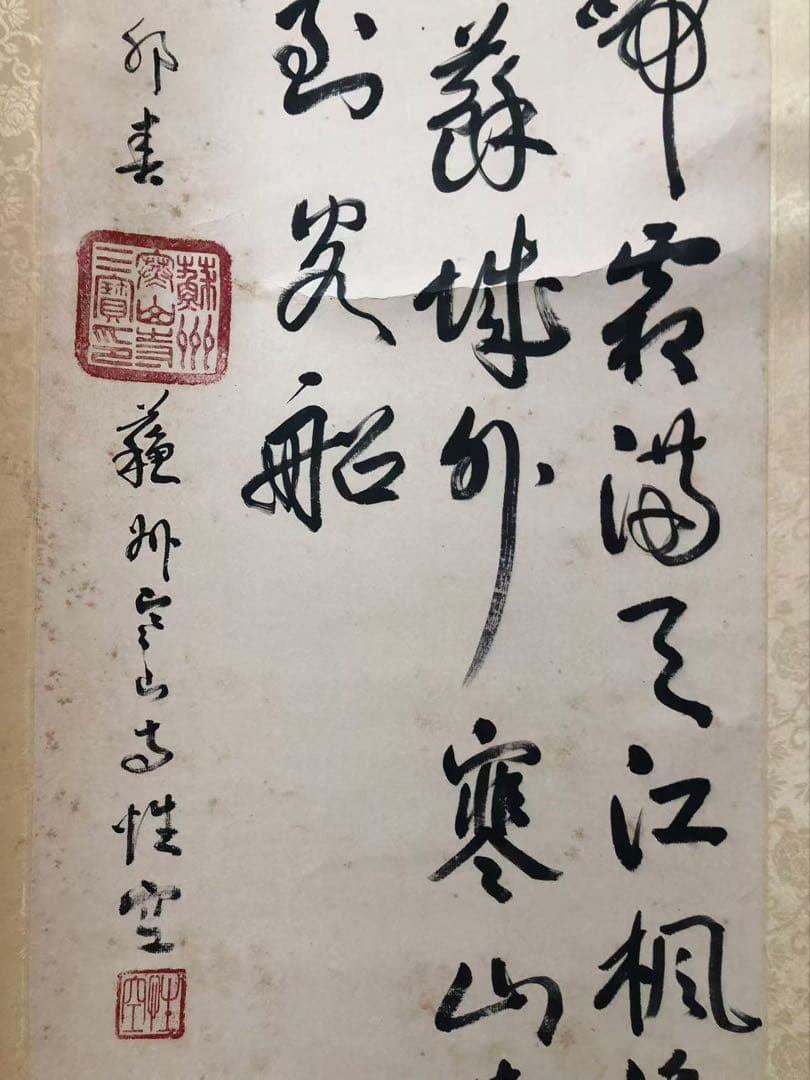 啼霜满天江枫渔
蘇城外寒山寺
到客船
卯春
蘇州寒山寺三寶印
蘇州寒山寺性空
性空